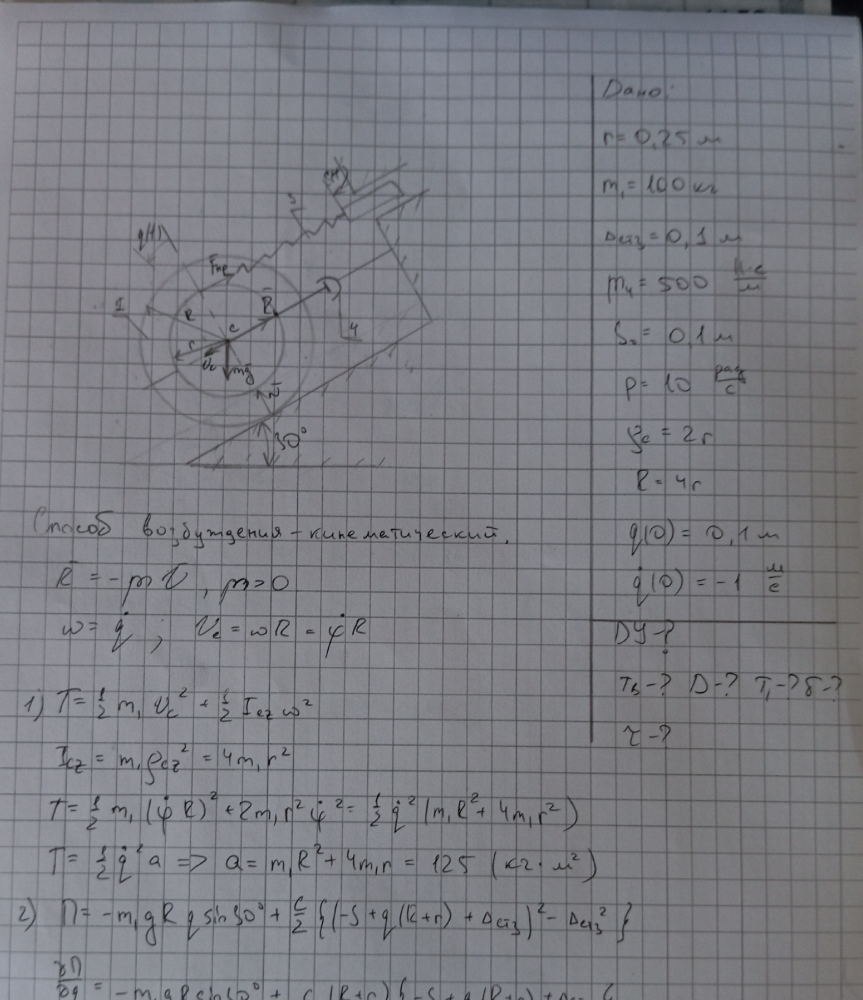 Дано:
r = 0,25 м
m₁ = 100 кг
Δст₃ = 0,1 м
μ₄ = 500 Н·с/м
S₀ = 0,1 м
p = 10 рад/с
ρc = 2r
R = 4r
q(0) = 0,1 м
q̇(0) = -1 м/с
ДУ-?
Tв-? D-? T₁-? δ-?
τ-?
q(t)
Fпр
3
1
R
C
R̄
r
Vc
mg
N̄
4
30°
Способ возбуждения - кинематический.
R̄ = -μ V̄, μ>0
ω = q̇ ; Vc = ωR = φ̇R
1) T = ½ m₁ Vc² + ½ Icz ω²
Icz = m₁ρcz² = 4m₁r²
T = ½ m₁ (φ̇R)² + 2m₁r²φ̇² = ½ q̇² (m₁R² + 4m₁r²)
T = ½ q̇² a => a = m₁R² + 4m₁r = 125 (кг·м²)
2) П = -m₁gRq sin30° + c/2 {(-S + q(R+r) + Δст₃)² - Δст₃²}
∂П/∂q = -m₁gR sin30° +